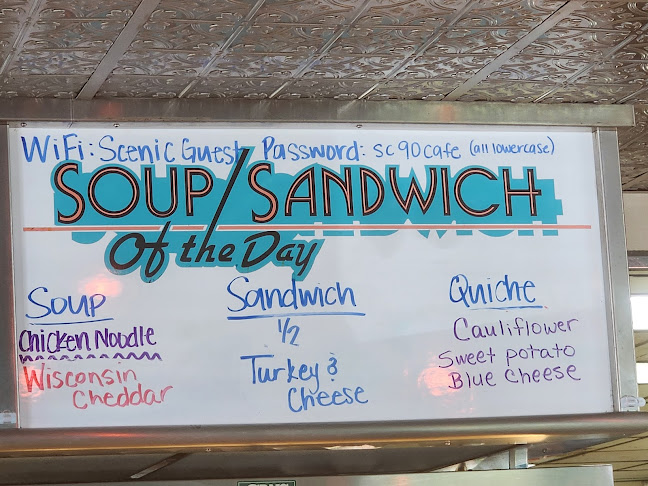 WiFi: Scenic Guest Password: sc90cafe (all lowercase)
SOUP/SANDWICH
Of the Day
Soup
Chicken Noodle
Wisconsin
Cheddar
Sandwich
1/2
Turkey &
Cheese
Quiche
Cauliflower
Sweet potato
Blue Cheese